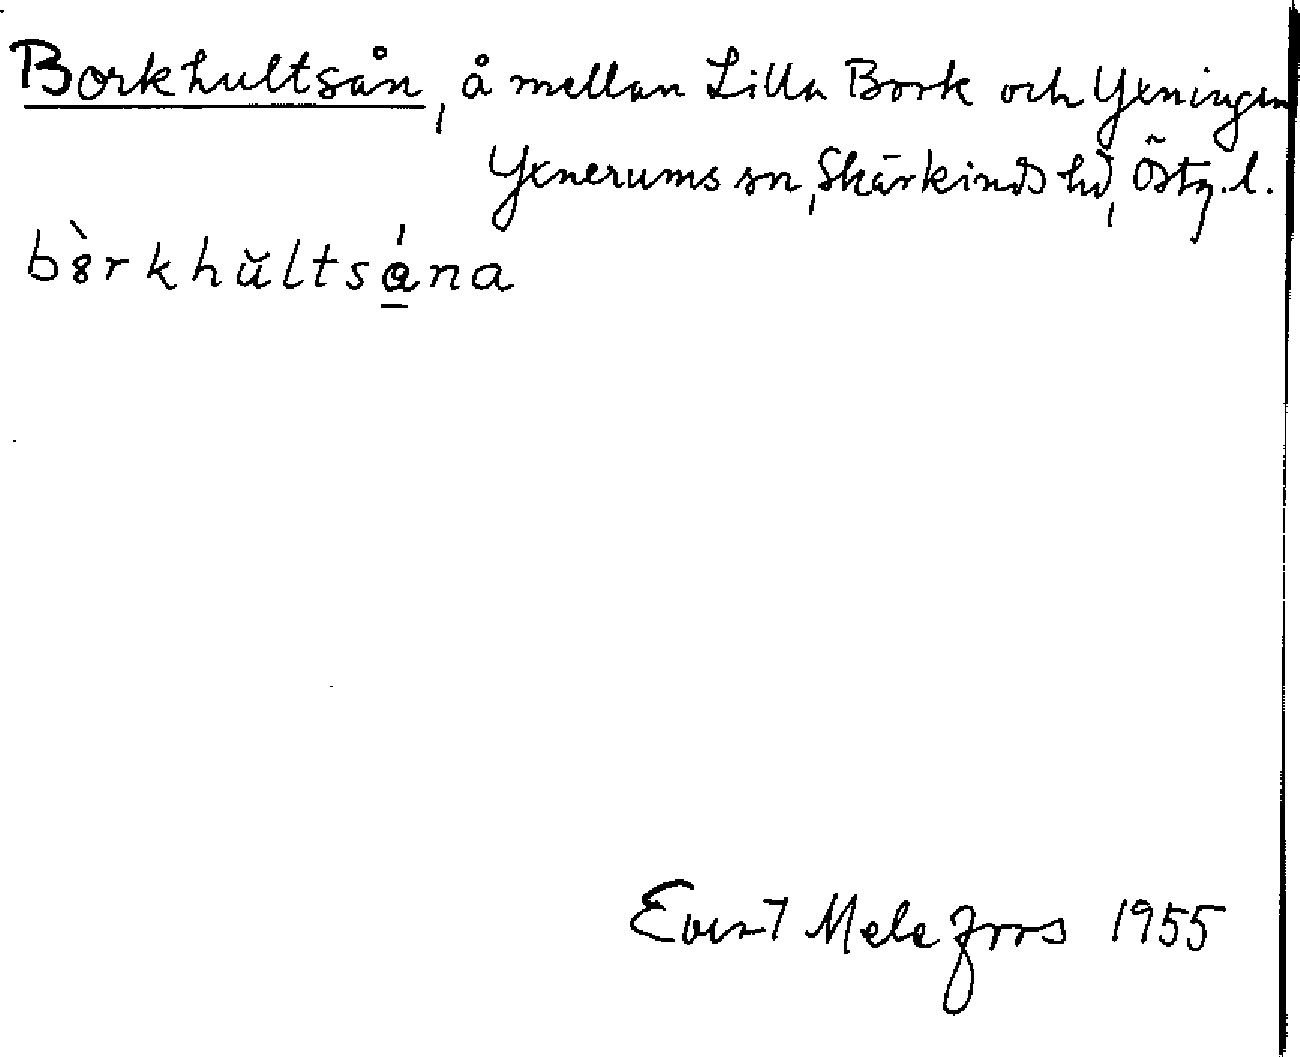 Borkhultsån, å mellan Lilla Bork och Yxningen
Yxnerums sn, Skärkinds hd, Östg. l.
bȣ̀rkhŭltsá̱na
Evert Melefors 1955